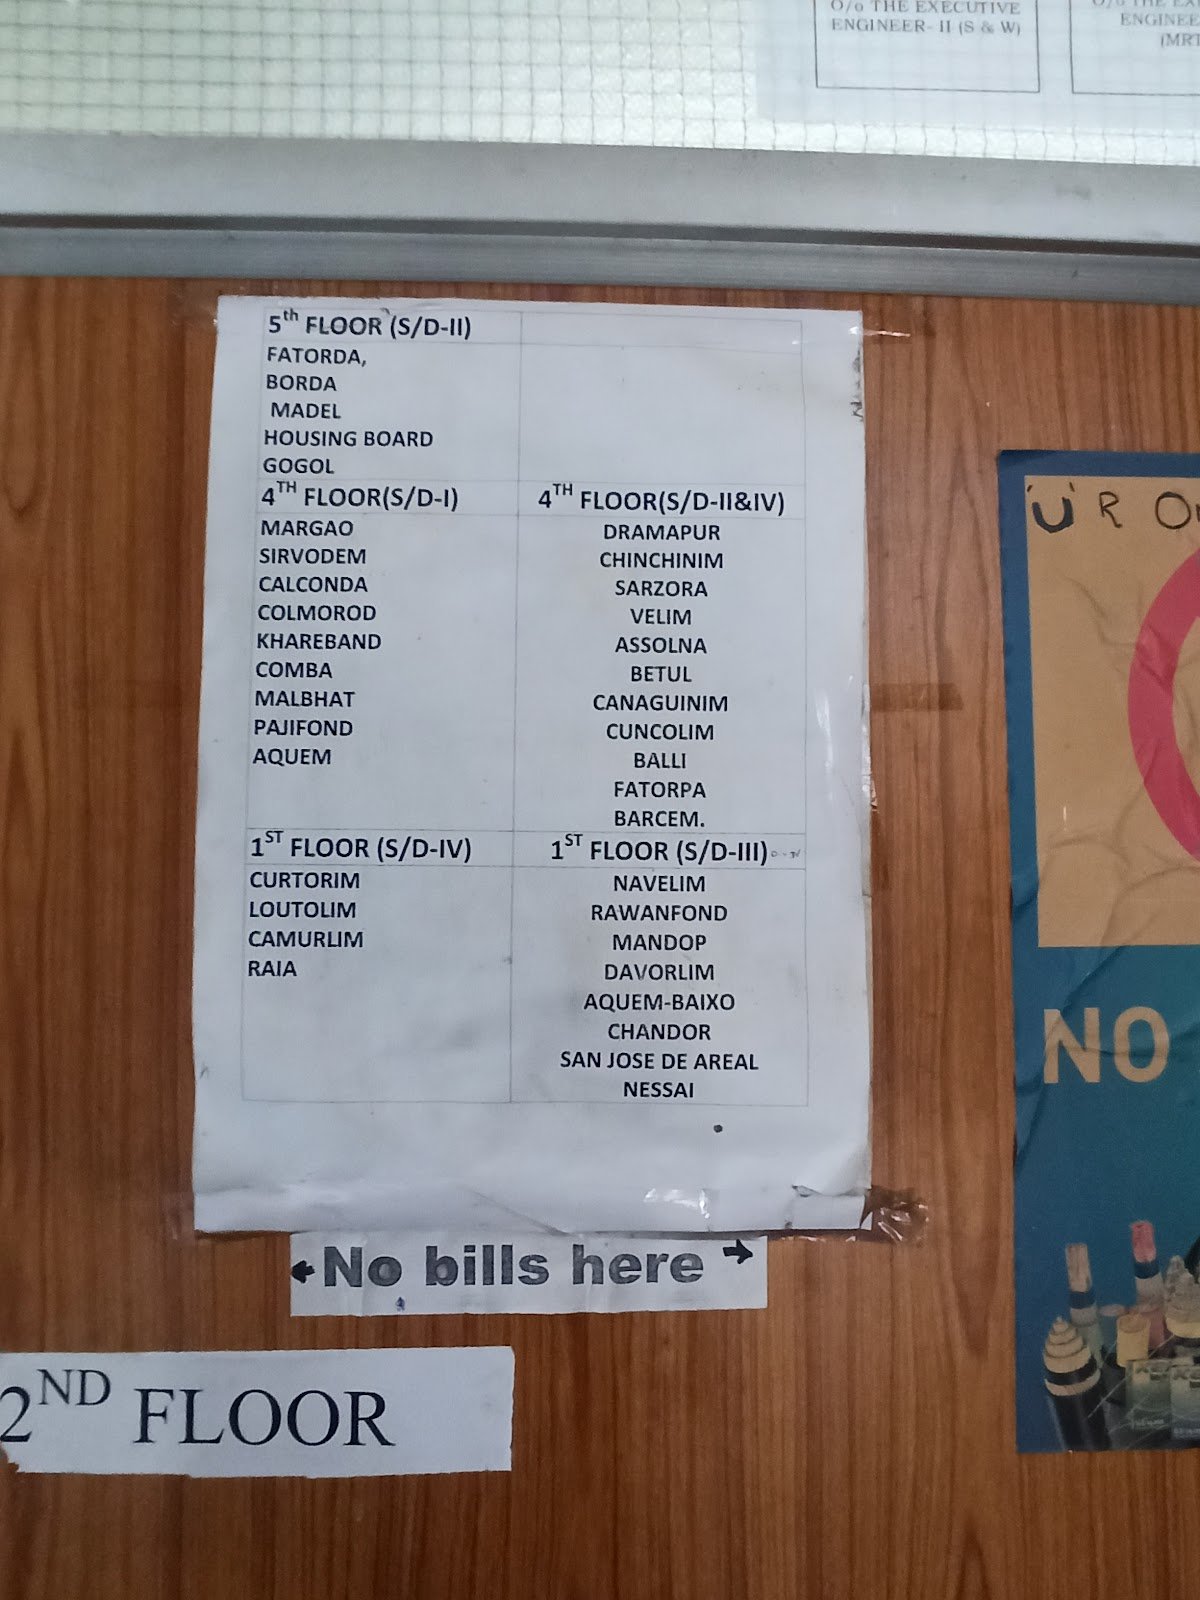 O/o THE EXECUTIVE
ENGINEER- II (S & W)
O/o THE
ENGINEE
(MRT
5th FLOOR (S/D-II)
FATORDA,
BORDA
MADEL
HOUSING BOARD
GOGOL
4TH FLOOR(S/D-I)
MARGAO
SIRVODEM
CALCONDA
COLMOROD
KHAREBAND
COMBA
MALBHAT
PAJIFOND
AQUEM
4TH FLOOR(S/D-II&IV)
DRAMAPUR
CHINCHINIM
SARZORA
VELIM
ASSOLNA
BETUL
CANAGUINIM
CUNCOLIM
BALLI
FATORPA
BARCEM.
1ST FLOOR (S/D-IV)
CURTORIM
LOUTOLIM
CAMURLIM
RAIA
1ST FLOOR (S/D-III)
NAVELIM
RAWANFOND
MANDOP
DAVORLIM
AQUEM-BAIXO
CHANDOR
SAN JOSE DE AREAL
NESSAI
No bills here
2ND FLOOR
'U' R
NO